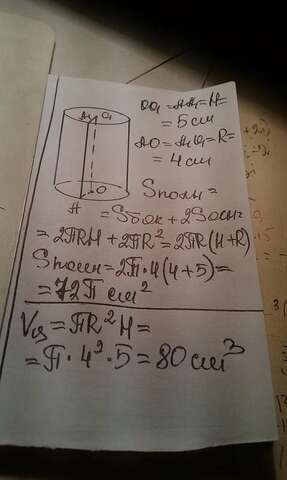 A₁ O₁
OO₁ = AA₁ = H =
= 5 см
AO = A₁O₁ = R =
= 4 см
O
A
Sполн =
= Sбок + 2Sосн =
= 2ПRH + 2ПR² = 2ПR(H+R)
Sполн = 2П·4(4+5) =
= 72П см²
Vц = ПR²H =
= П·4²·5 = 80 см³